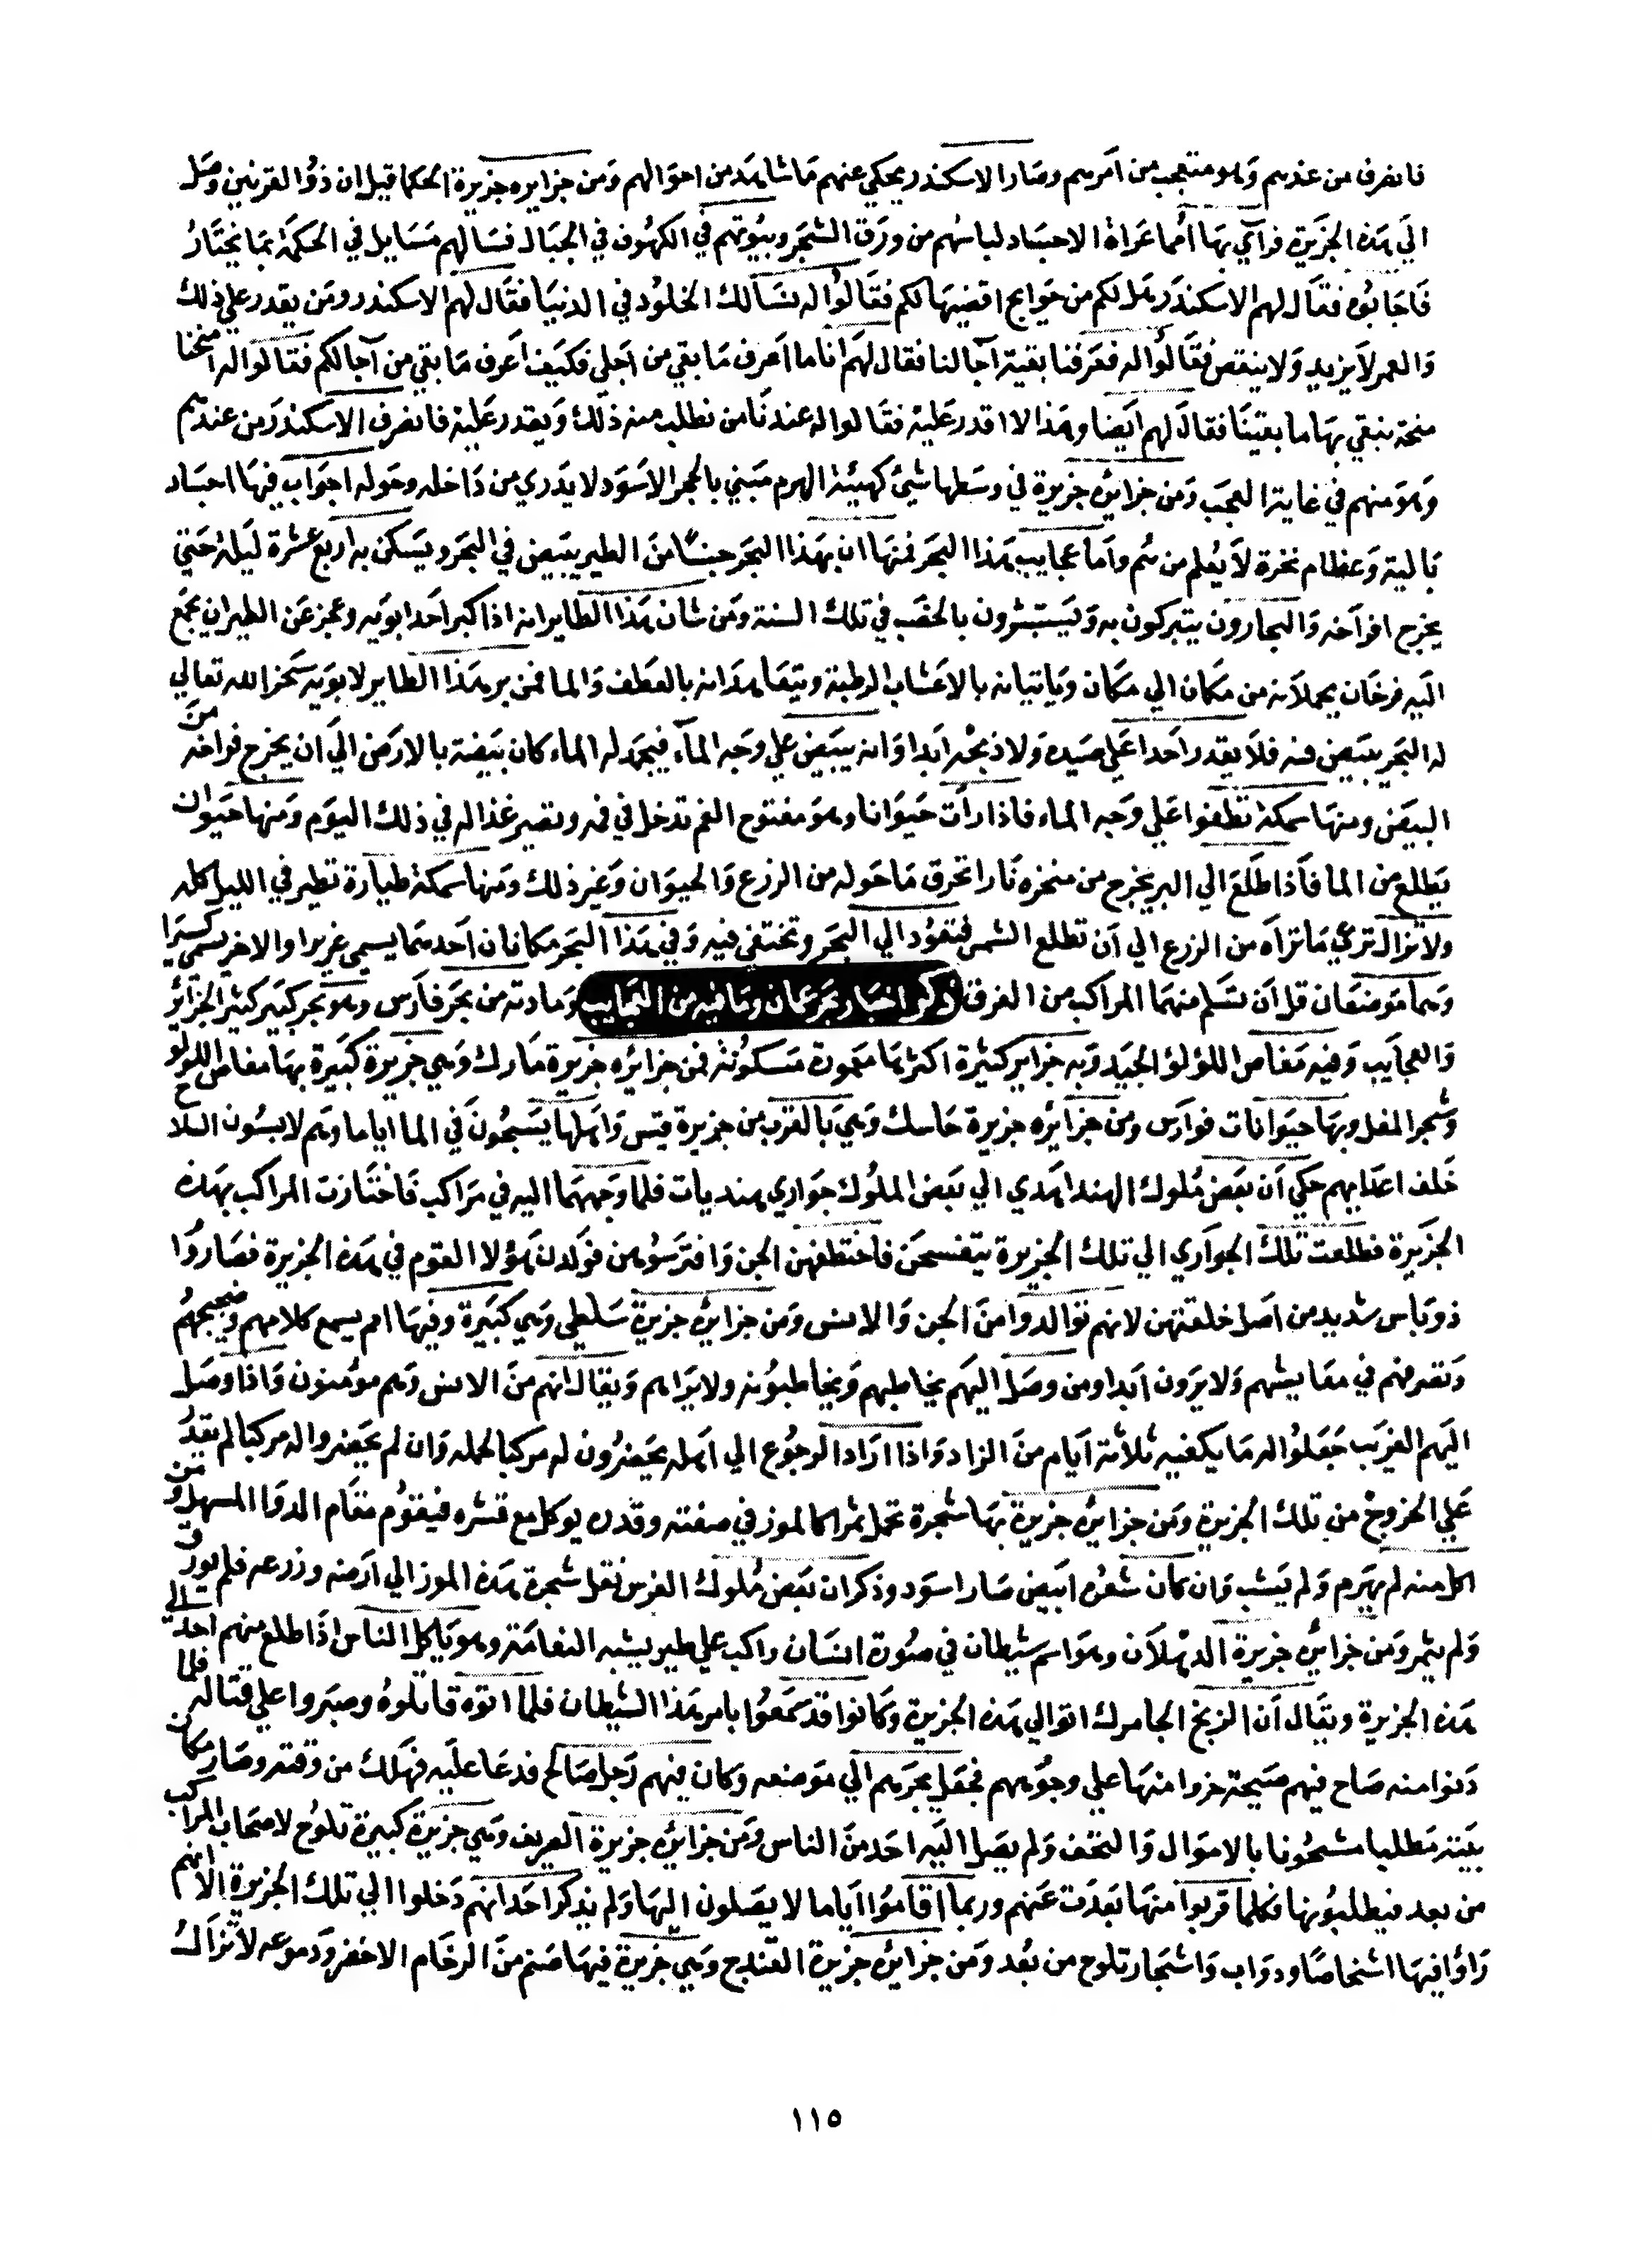 فانصرف من عندهم وهو متعجب من امرهم وصار الاسكندر يحكي عنهم ما شاهد من احوالهم ومن جزايره جزيرة الحكما قيل ان ذو القرنين وصل
الي هذه الجزيرة فرآي بها أمما عراة الاجساد لباسهم من ورق الشجر وبيوتهم في الكهوف في الجبال فسالهم مسايل في الحكمة بما يختار
فاجابوه فقال لهم الاسكندر هل لكم من حوايج اقضيها لكم فقالوا له نسالك الخلود في الدنيا فقال لهم الاسكندر ومن يقدر علي ذلك
والعمر لا يزيد ولا ينقص فقالوا له فعرفنا بقية آجالنا فقال لهم انا ما اعرف ما بقي من اجلي فكيف اعرف ما بقي من آجالكم فقالوا له امنحنا
منحة نبقي بها ما بقينا فقال لهم ايضا وهذا لا اقدر عليه فقالوا له عندنا من نطلب منه ذلك ويقدر عليه فانصرف الاسكندر من عندهم
وهو منهم في غاية العجب ومن جزائره جزيرة في وسطها شئ كهيئة الهرم مبني بالحجر الاسود لا يدري من داخله وحوله اجواب فيها اجساد
بالية وعظام نخرة لا يعلم من هم وأما عجايب هذا البحر فمنها ان بهذا البحر جنسا من الطير يبيض في البحر ويسكن به اربع عشرة ليلة حتي
يخرج افراخه والبحارون يتبركون به ويستبشرون بالخصب في تلك السنة ومن شان هذا الطاير انه اذا كبر احد ابويه وعجز عن الطيران يجمع
اليه فرخان يحملانه من مكان الي مكان وياتيانه بالاعشاب الرطبة ويتقاهدانه بالعطف والما فمن بر هذا الطاير لابويه سخر الله تعالي
له البحر يبيض فيه فلا يقدر احدا علي صيده ولا ذبحه ابدا وانه يبيض علي وجه المآء فيجمد له الماء كان بيضة بالارض الي ان يخرج فراخه من
البيض ومنها سمكة تطفوا علي وجه الماء فاذا رات حيوانا وهو مفتوح الفم تدخل في فمه وتصير غذا له في ذلك اليوم ومنها حيوان
يطلع من الما فاذا طلع الي البر يخرج من منخره نارا تحرق ما حوله من الزرع والحيوان وغير ذلك ومنها سمكة طيارة تطير في الليل كله
ولا تزال ترعي ما تراه من الزرع الي ان تطلع الشمس فتعود الي البحر وتختفي فيه وفي هذا البحر مكانان احدهما يسمي غريرا والاخر يسمي كسيرا
وهما موضعان قل ان تسلم منهما المراكب من الغرق ذكر اخبار بحر عمان وما فيه من العجايب ومادته من بحر فارس وهو بحر كبير كثير الجزائر
والعجايب وفيه مغاص اللؤلؤ الجيد وبه جزاير كثيرة اكثرها معمورة مسكونة فمن جزائره جزيرة مارك وهي جزيرة كبيرة بها مغاص اللولو
وشجر المقل وبها حيوانات فوارس ومن جزائره جزيرة حاسك وهي بالقرب من جزيرة قيس واهلها يسبحون في الما اياما وهم لابسون السلاح
خلف اعدايهم حكي ان بعض ملوك الهند اهدي الي بعض الملوك جواري هنديات فلما وجههما اليه في مراكب فاختازت المراكب بهذه
الجزيرة فطلعت تلك الجواري الي تلك الجزيرة يتفسحن فاختطفهن الجن وافترسوهن فولدن هؤلا القوم في هذه الجزيرة فصاروا
ذو باس شديد من اصل خلقتهن لانهم توالدوا من الجن والانس ومن جزائره جزيرة سلطي وهي كبيرة وفيها امم يسمع كلامهم وضجيجهم
وتصرفهم في معايشهم ولا يرون ابدا ومن وصل اليهم يخاطبهم ويخاطبونه ولا يراهم ويقال انهم من الانس وهم مومنون واذا وصل
اليهم الغريب جعلوا له ما يكفيه ثلاثة ايام من الزاد واذا اراد الرجوع الي اهله يحضرون له مركبا لحمله وان لم يحضروا له مركبا لم يقدر
علي الخروج من تلك الجزيرة ومن جزائره جزيرة بها شجرة تحمل ثمرا كالموز في صفته وقدره يوكل مع قشره فيقوم مقام الدوا المسهل ومن
اكل منه لم يهرم ولم يشب وان كان شعره ابيض صار اسود وذكر ان بعض ملوك الفرس نقل شجرة هذه الموز الي ارضه وزرعه فلم يورق
ولم يثمر ومن جزائره جزيرة الدهلان وهو اسم شيطان في صورة انسان راكب علي طير يشبه النعامة وهو ياكل الناس اذا طلع منهم احد الي
هذه الجزيرة ويقال ان الزنج الجامرك اتوا الي هذه الجزيرة وكانوا قد سمعوا بامر هذا الشيطان فلما اتوه قاتلوه وصبروا علي قتاله فلما
دنوا منه صاح فيهم صيحة خروا منها علي وجوههم فجعل يجرهم الي موضعه وكان فيهم رجل صالح فدعا عليه فهلك من وقته وصار مكان
بيته مطلبا مشحونا بالاموال والتحف ولم يصل اليه احد من الناس ومن جزائره جزيرة العريف وهي جزيرة كبيرة تلوح لاصحاب المراكب
من بعد فيطلبونها فكلما قربوا منها بعدت عنهم وربما اقاموا اياما لا يصلون اليها ولم يذكر احد انهم دخلوا الي تلك الجزيرة الا انهم
راؤا فيها اشخاصا ودواب واشجار تلوح من بعد ومن جزائره جزيرة القندج وهي جزيرة فيها صنم من الرخام الاخضر ودموعه لا تزال
١١٥